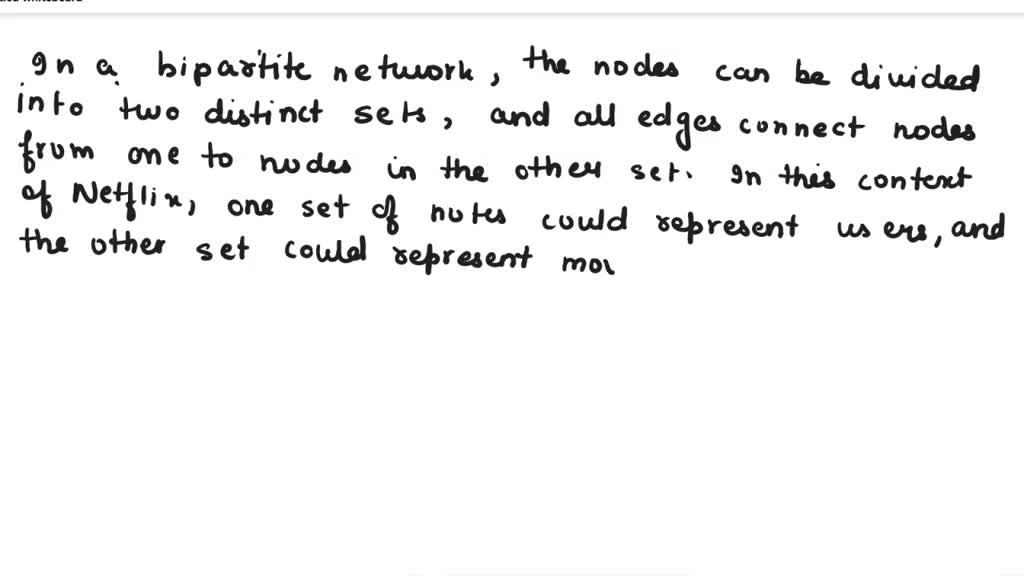 In a bipartite network, the nodes can be divided
into two distinct sets, and all edges connect nodes
from one to nodes in the other set. In this context
of Netflix, one set of notes could represent users, and
the other set could represent mov